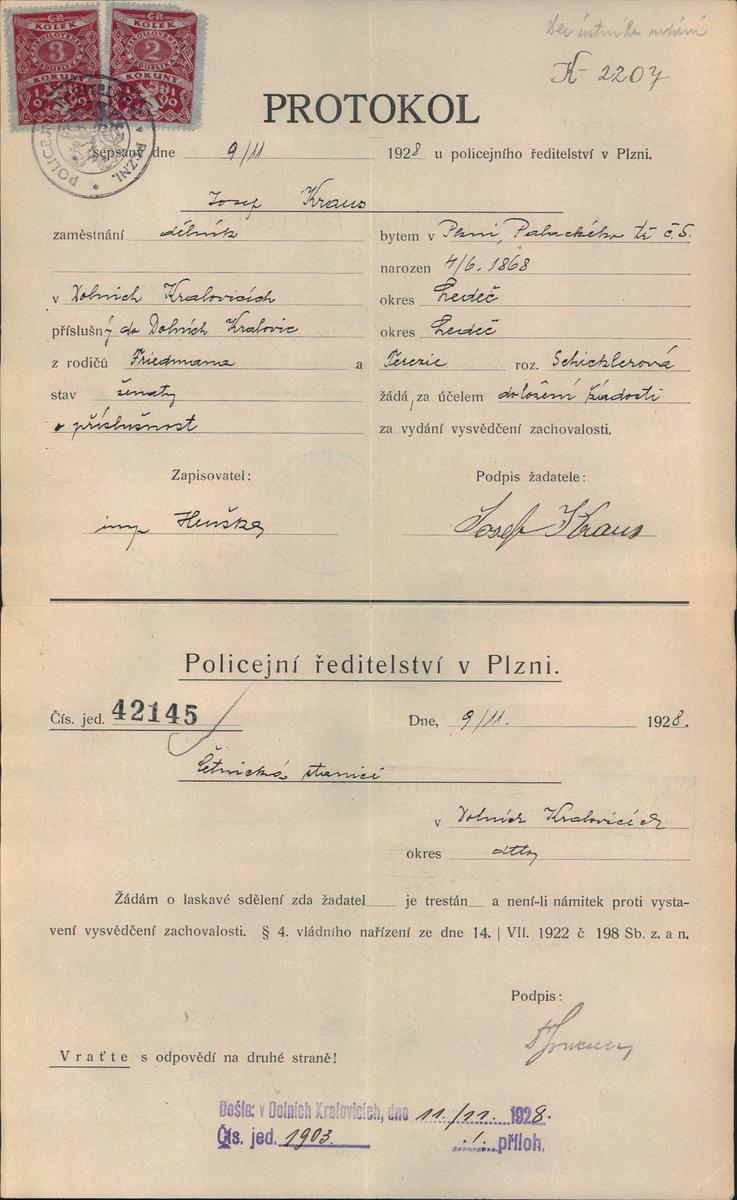 ČR ČR
KOLEK KOLEK
3 2
KORUNY KORUNY
K-2207
PROTOKOL
sepsaný dne 9/11 1928 u policejního ředitelství v Plzni.
Josef Kraus
zaměstnání dělník bytem v Plzni, Palackého tř. č. 5.
narozen 4/6. 1868
v Dolních Kralovicích okres Ledeč
příslušný do Dolních Kralovic okres Ledeč
z rodičů Friedmana a Terezie roz. Schicklerová
stav ženatý žádá, za účelem doložení žádosti
o příslušnost za vydání vysvědčení zachovalosti.
Zapisovatel: Podpis žadatele:
insp Josef Kraus
Policejní ředitelství v Plzni.
Čís. jed. 42145 Dne, 9/11. 1928.
Četnická stanici
v Dolních Kralovicích
okres dtto
Žádám o laskavé sdělení zda žadatel je trestán a není-li námitek proti vysta-
vení vysvědčení zachovalosti. § 4. vládního nařízení ze dne 14. | VII. 1922 č 198 Sb. z. a n.
Podpis:
Vraťte s odpovědí na druhé straně!
Došlo: v Dolních Kralovicích, dne 11./11. 1928.
Čís. jed. 1903. ./. příloh.